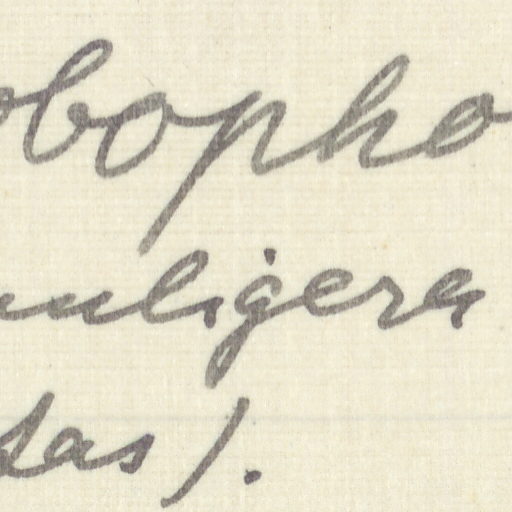 obopho
uligera
sas).